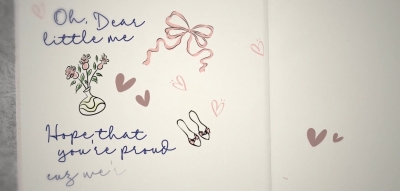 Oh, Dear
little me
Hope that
you're proud
cuz we'r